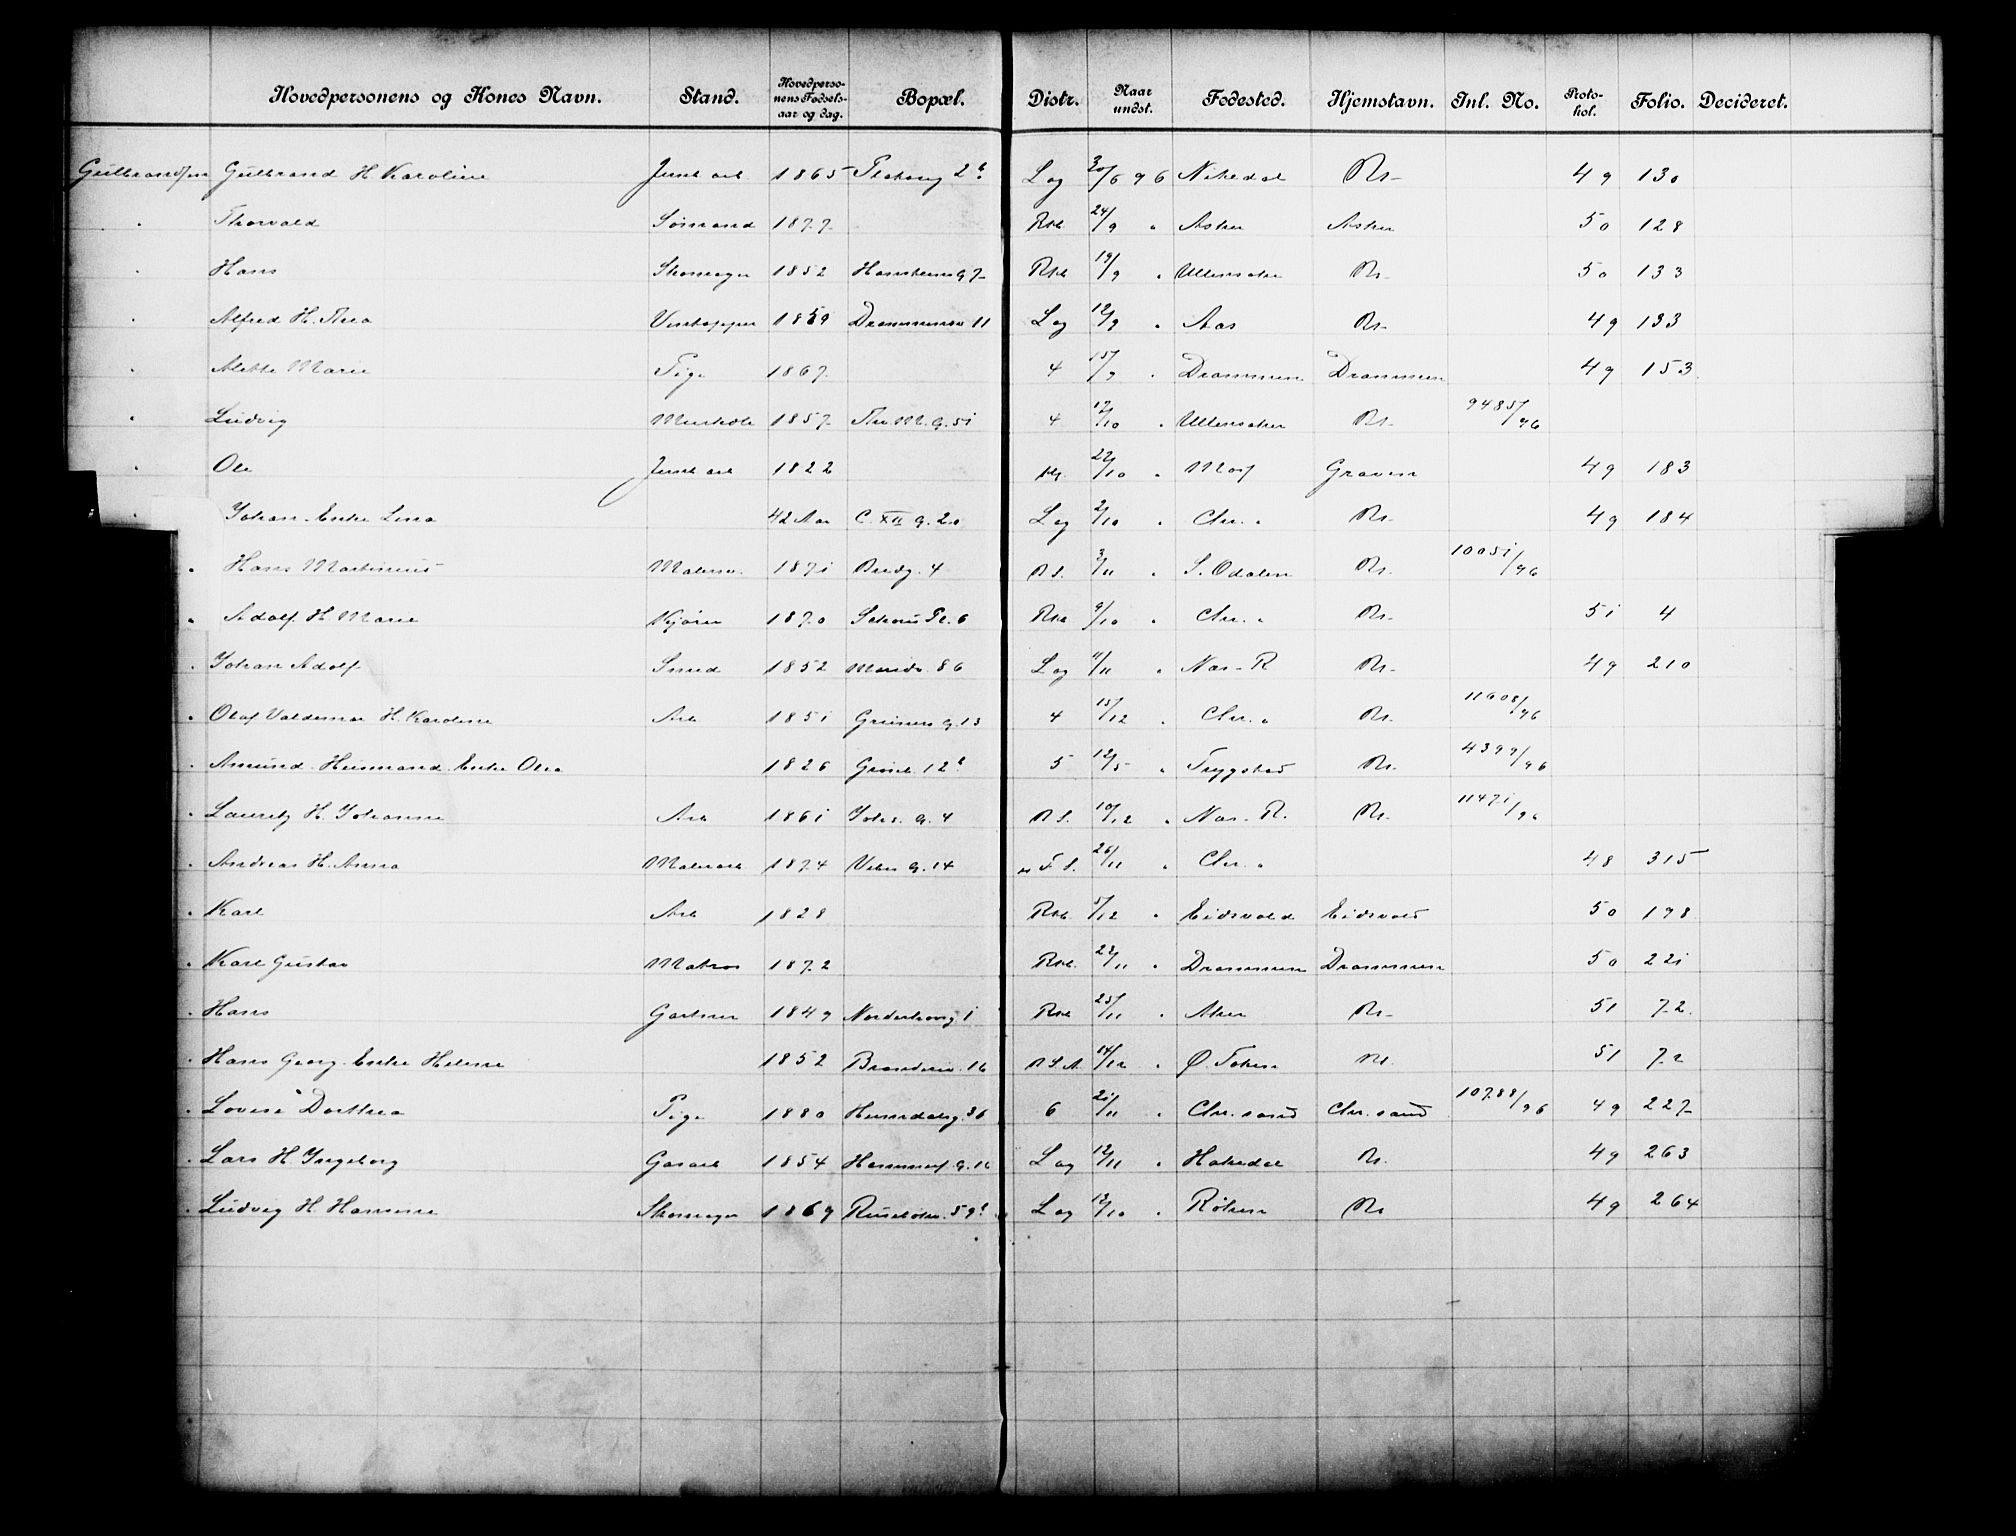 Hovedpersonens og Kones Navn. Stand. Hovedpersonens Fødselsaar og dag. Bopæl. Distr. Naar undst. Fødested. Hjemstavn. Inl. No. Protokol. Folio. Decideret.
Gulbrandsen Gulbrand H Karoline Jernb arb 1865 2b Log 30/6 96 Nitedal Kr 49 130
" Thorvald Sømand 1877 Rkb 24/9 " Asker Asker 50 128
" Hans Skomager 1852 7 Rkb 19/9 " Ullensaker Kr 50 133
" Alfred H. Thea 1859 Drammensv 11 Log 12/9 " Aas Kr 49 133
" Alette Marie Pige 1867 4 15/9 " Drammen Drammen 49 153
" Ludvig 1857 Thv. M. G. 51 4 17/10 " Ullensaker Kr 9485/96
" Ole Jernb arb 1822 22/10 " Graven 49 183
" Johan Enke Lina 42 Aar C. XII G. 20 Log 2/10 " Chr. " Kr 49 184
" Hans Martinius Malersv. 1871 Bredg. 4 3/11 " S. Odalen Kr. 10051/96
" Adolf H Marie Kjører 1870 Schous Pl. 6 Rkb 9/10 " Chr. " Kr 51 4
" Johan Adolf Smed 1852 Marids. 86 Log 11/11 " Nes-R Kr 49 210
" Olaf Valdemar H. Karoline Arb 1851 Grüners G. 13 4 15/12 " Chr. " Kr. 11608/96
" Amund Husmand Enke Olea 1826 Grønl. 12b 5 12/5 " Trygstad Kr. 4399/96
" Lauritz H. Johanne Arb 1861 Johs. G. 4 10/12 " Nes-R. Kr. 11471/96
" Andreas H. Anna Malerarb 1874 Vibes G. 14 F S. 26/11 " Chr. " 48 315
" Karl Arb 1828 Rkb 5/12 " Eidsvold Eidsvold 50 198
" Karl Gustav Matros 1872 Rkb. 22/11 " Drammen Drammen 50 221
" Hans Gartner 1849 Nordahlsg. 1 Rkb 25/11 " Aker Kr 51 72
" Hans Georg Enke Helene 1852 16 14/12 " Ø. Toten Kr. 51 72
" Lovise Dorthea Pige 1880 Heimdalsg. 36 6 21/11 " Chr. sand Chr. sand 10788/96 49 227
" Lars H Ingeborg Gasarb 1854 Hammerf. G. 16 Log 12/11 " Hakedal Kr. 49 263
" Ludvig H Hansine Skomager 1869 Ruseløkv. 59b Log 12/10 " Røken Kr 49 264